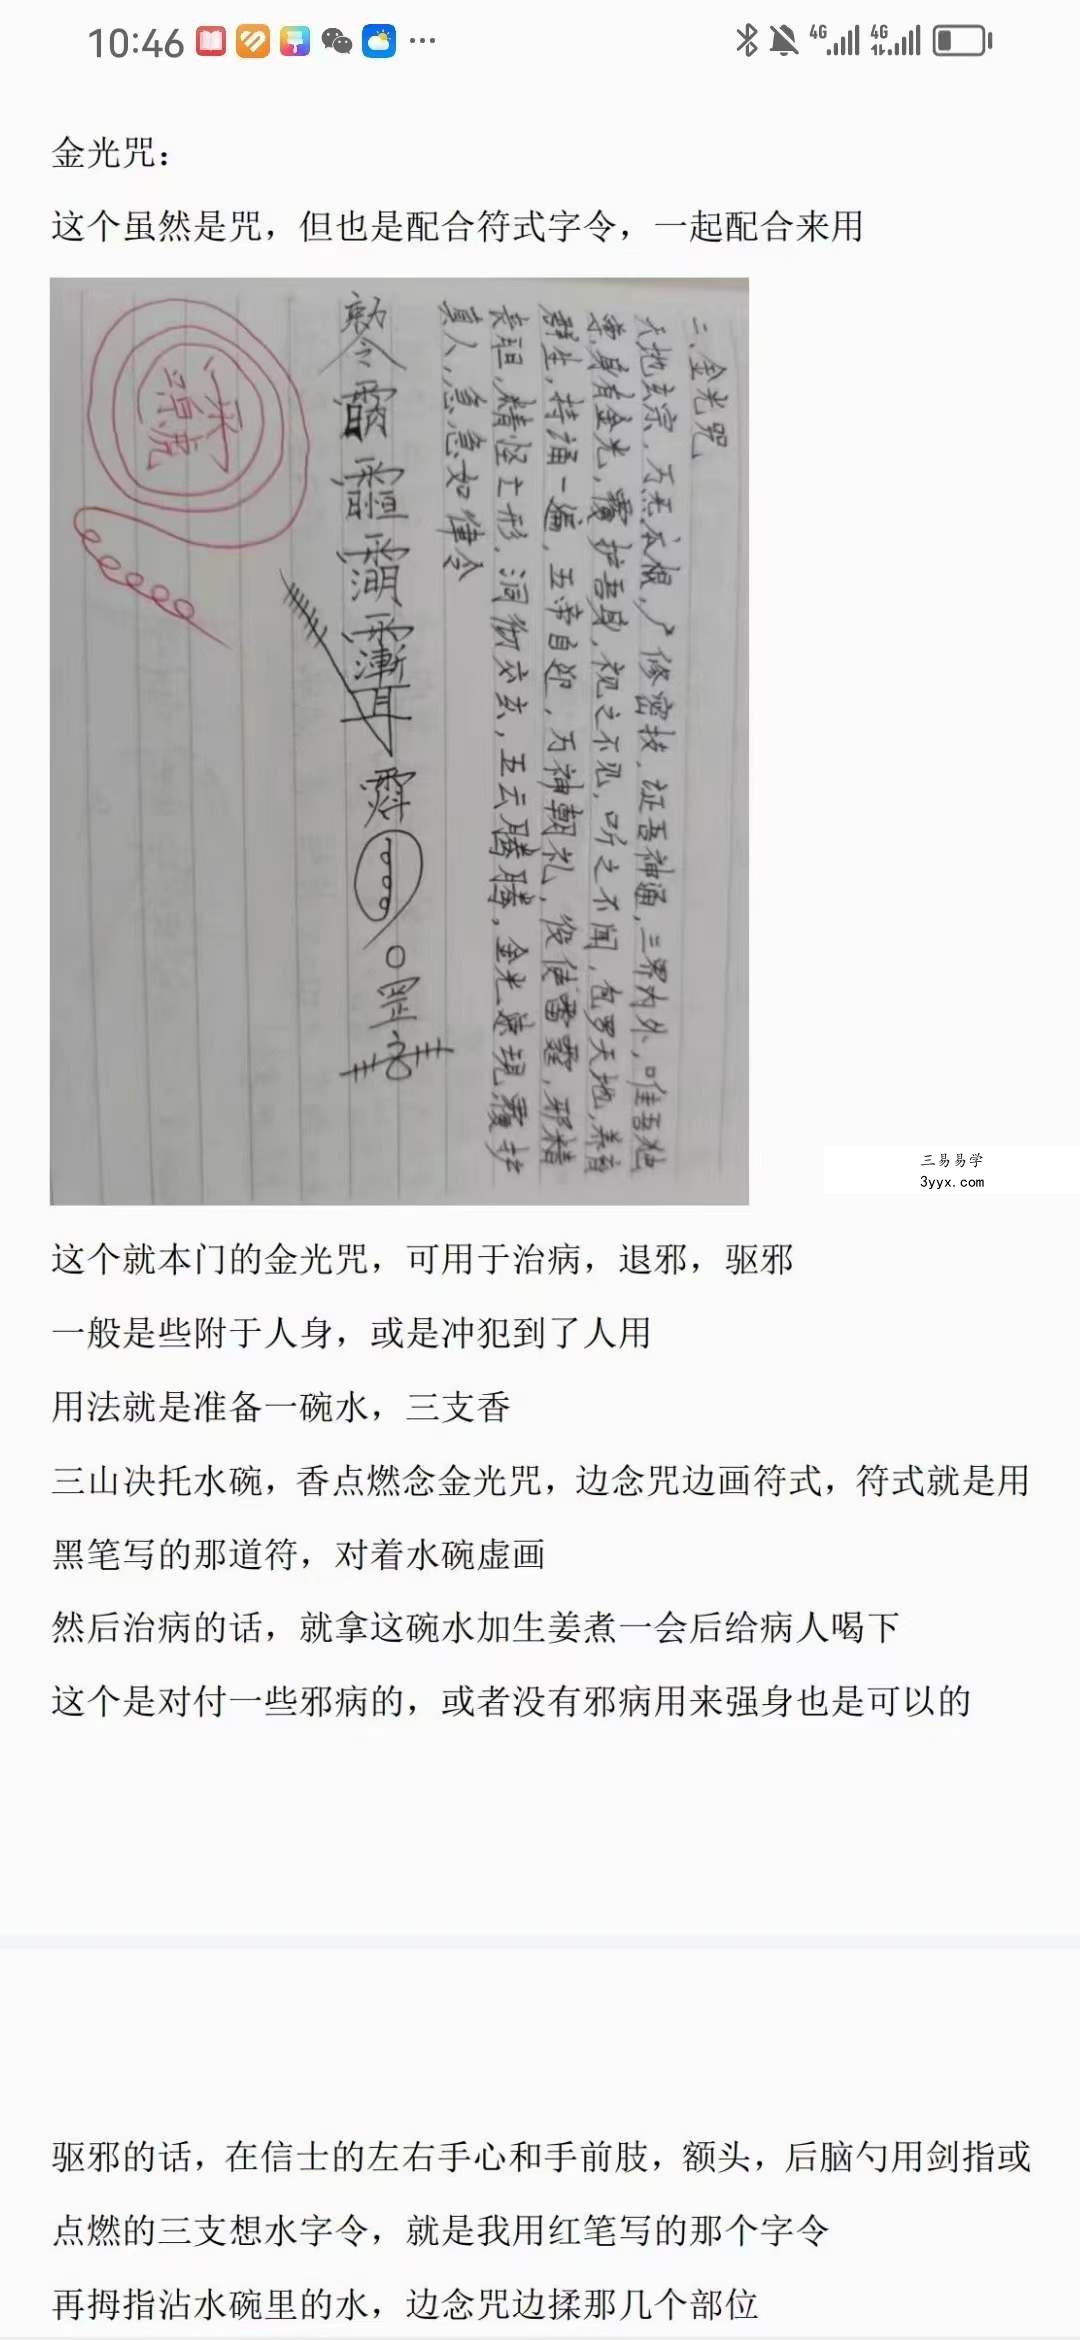 10:46
4G 4G
金光咒：
这个虽然是咒，但也是配合符式字令，一起配合来用
二、金光咒
天地玄宗，万炁本根，广修密技，证吾神通，三界内外，唯吾独
尊，身有金光，覆护吾身，视之不见，听之不闻，包罗天地，养育
群生，持诵一遍，五帝自迎，万神朝礼，役使雷霆，邪精
丧胆，精怪亡形，洞彻交玄，五云腾腾，金光速现覆护
真人，急急如律令
三易易学
3yyx.com
这个就本门的金光咒，可用于治病，退邪，驱邪
一般是些附于人身，或是冲犯到了人用
用法就是准备一碗水，三支香
三山决托水碗，香点燃念金光咒，边念咒边画符式，符式就是用
黑笔写的那道符，对着水碗虚画
然后治病的话，就拿这碗水加生姜煮一会后给病人喝下
这个是对付一些邪病的，或者没有邪病用来强身也是可以的
驱邪的话，在信士的左右手心和手前肢，额头，后脑勺用剑指或
点燃的三支想水字令，就是我用红笔写的那个字令
再拇指沾水碗里的水，边念咒边揉那几个部位